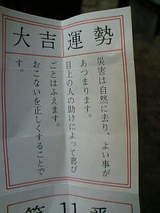 大吉運勢
災害は自然に去り、よい事が
あつまります。
目上の人の助けによって喜び
ごとはふえます。
おこないを正しくすることで
す。
第11番